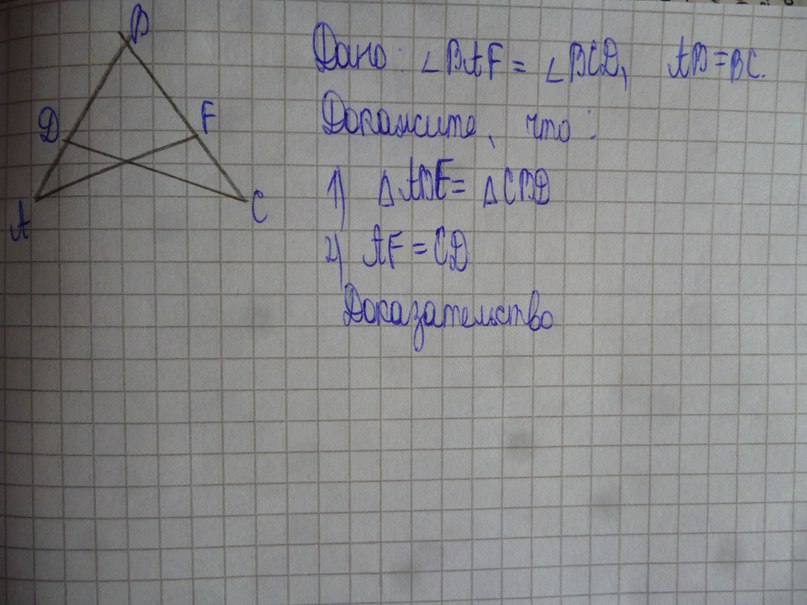 B
Дано: ∠BAF = ∠BCD, AB = BC.
D
F
Докажите, что:
1) △ABF = △CBD
A
C
2) AF = CD
Доказательство